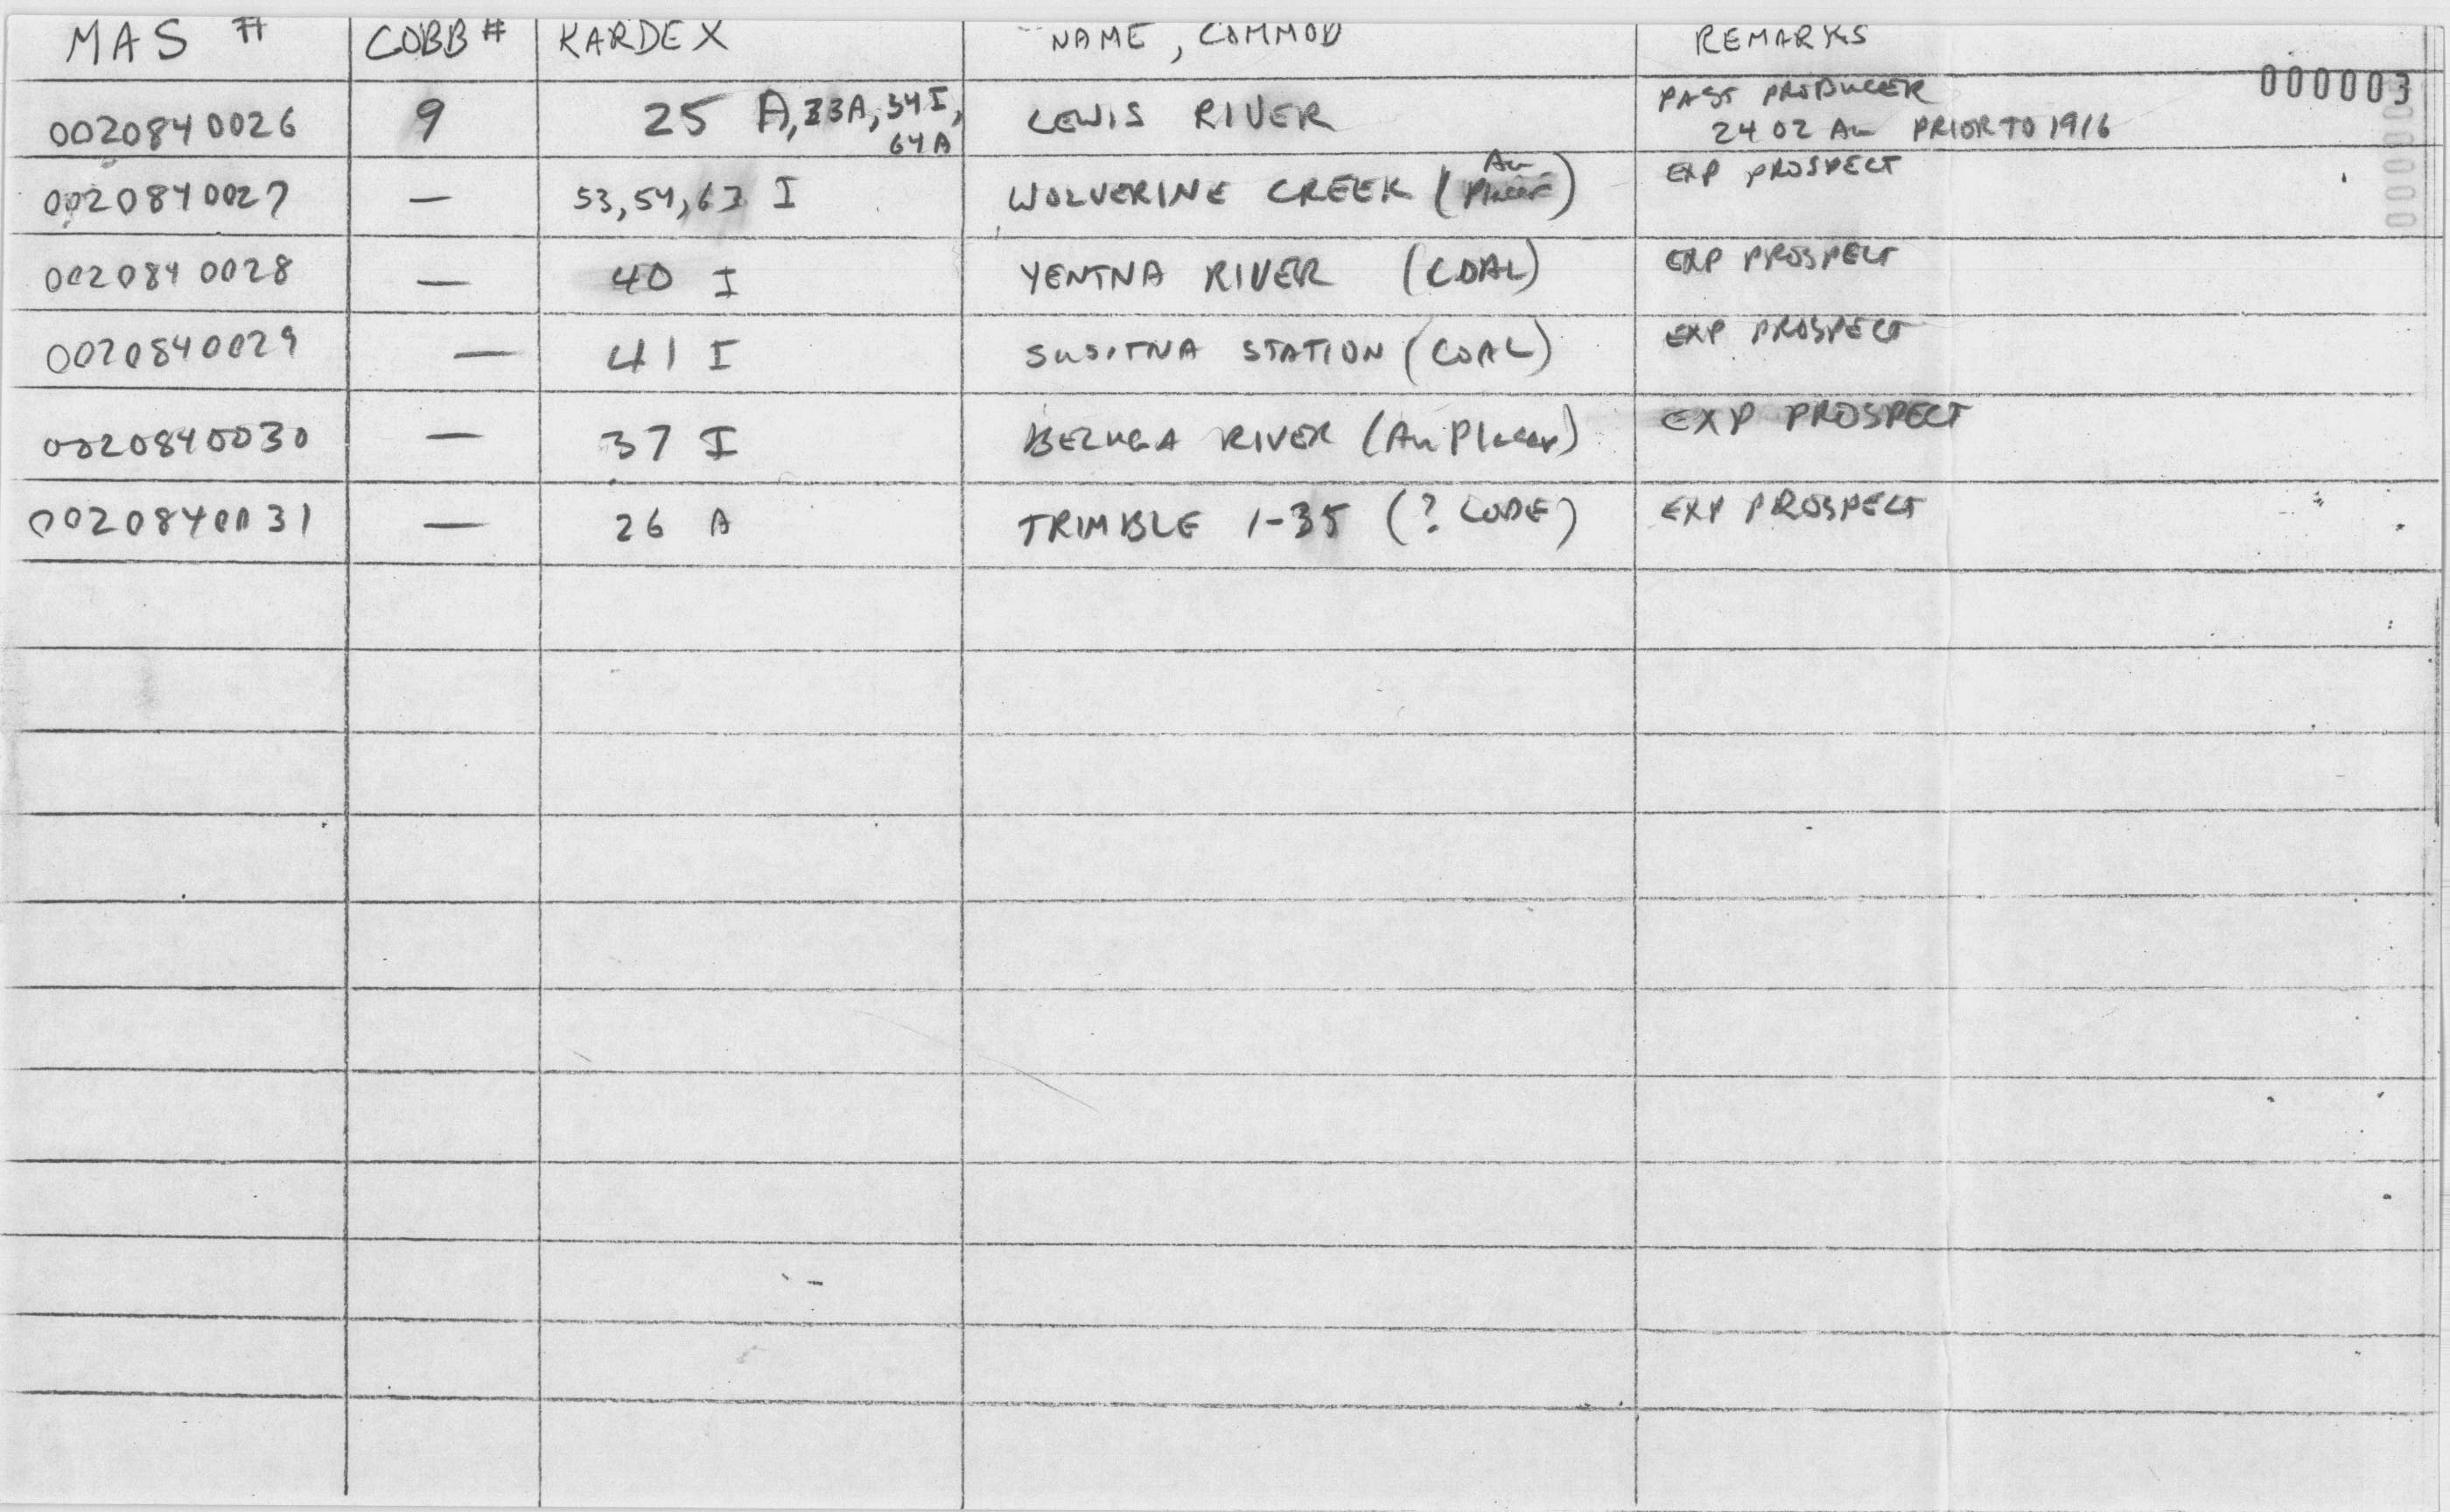 MAS # COBB # KARDEX NAME, COMMOD REMARKS
000003
0020840026 9 25 A, 33A, 34I, 64A LEWIS RIVER PAST PRODUCER
24 OZ Au PRIOR TO 1916
0020840027 — 53, 54, 63 I WOLVERINE CREEK (Au Placer) EXP PROSPECT
0020840028 — 40 I YENTNA RIVER (COAL) EXP PROSPECT
0020840029 — 41 I SUSITNA STATION (COAL) EXP PROSPECT
0020840030 — 37 I BELUGA RIVER (Au Placer) EXP PROSPECT
0020840031 — 26 A TRIMBLE 1-35 (? LODE) EXP PROSPECT